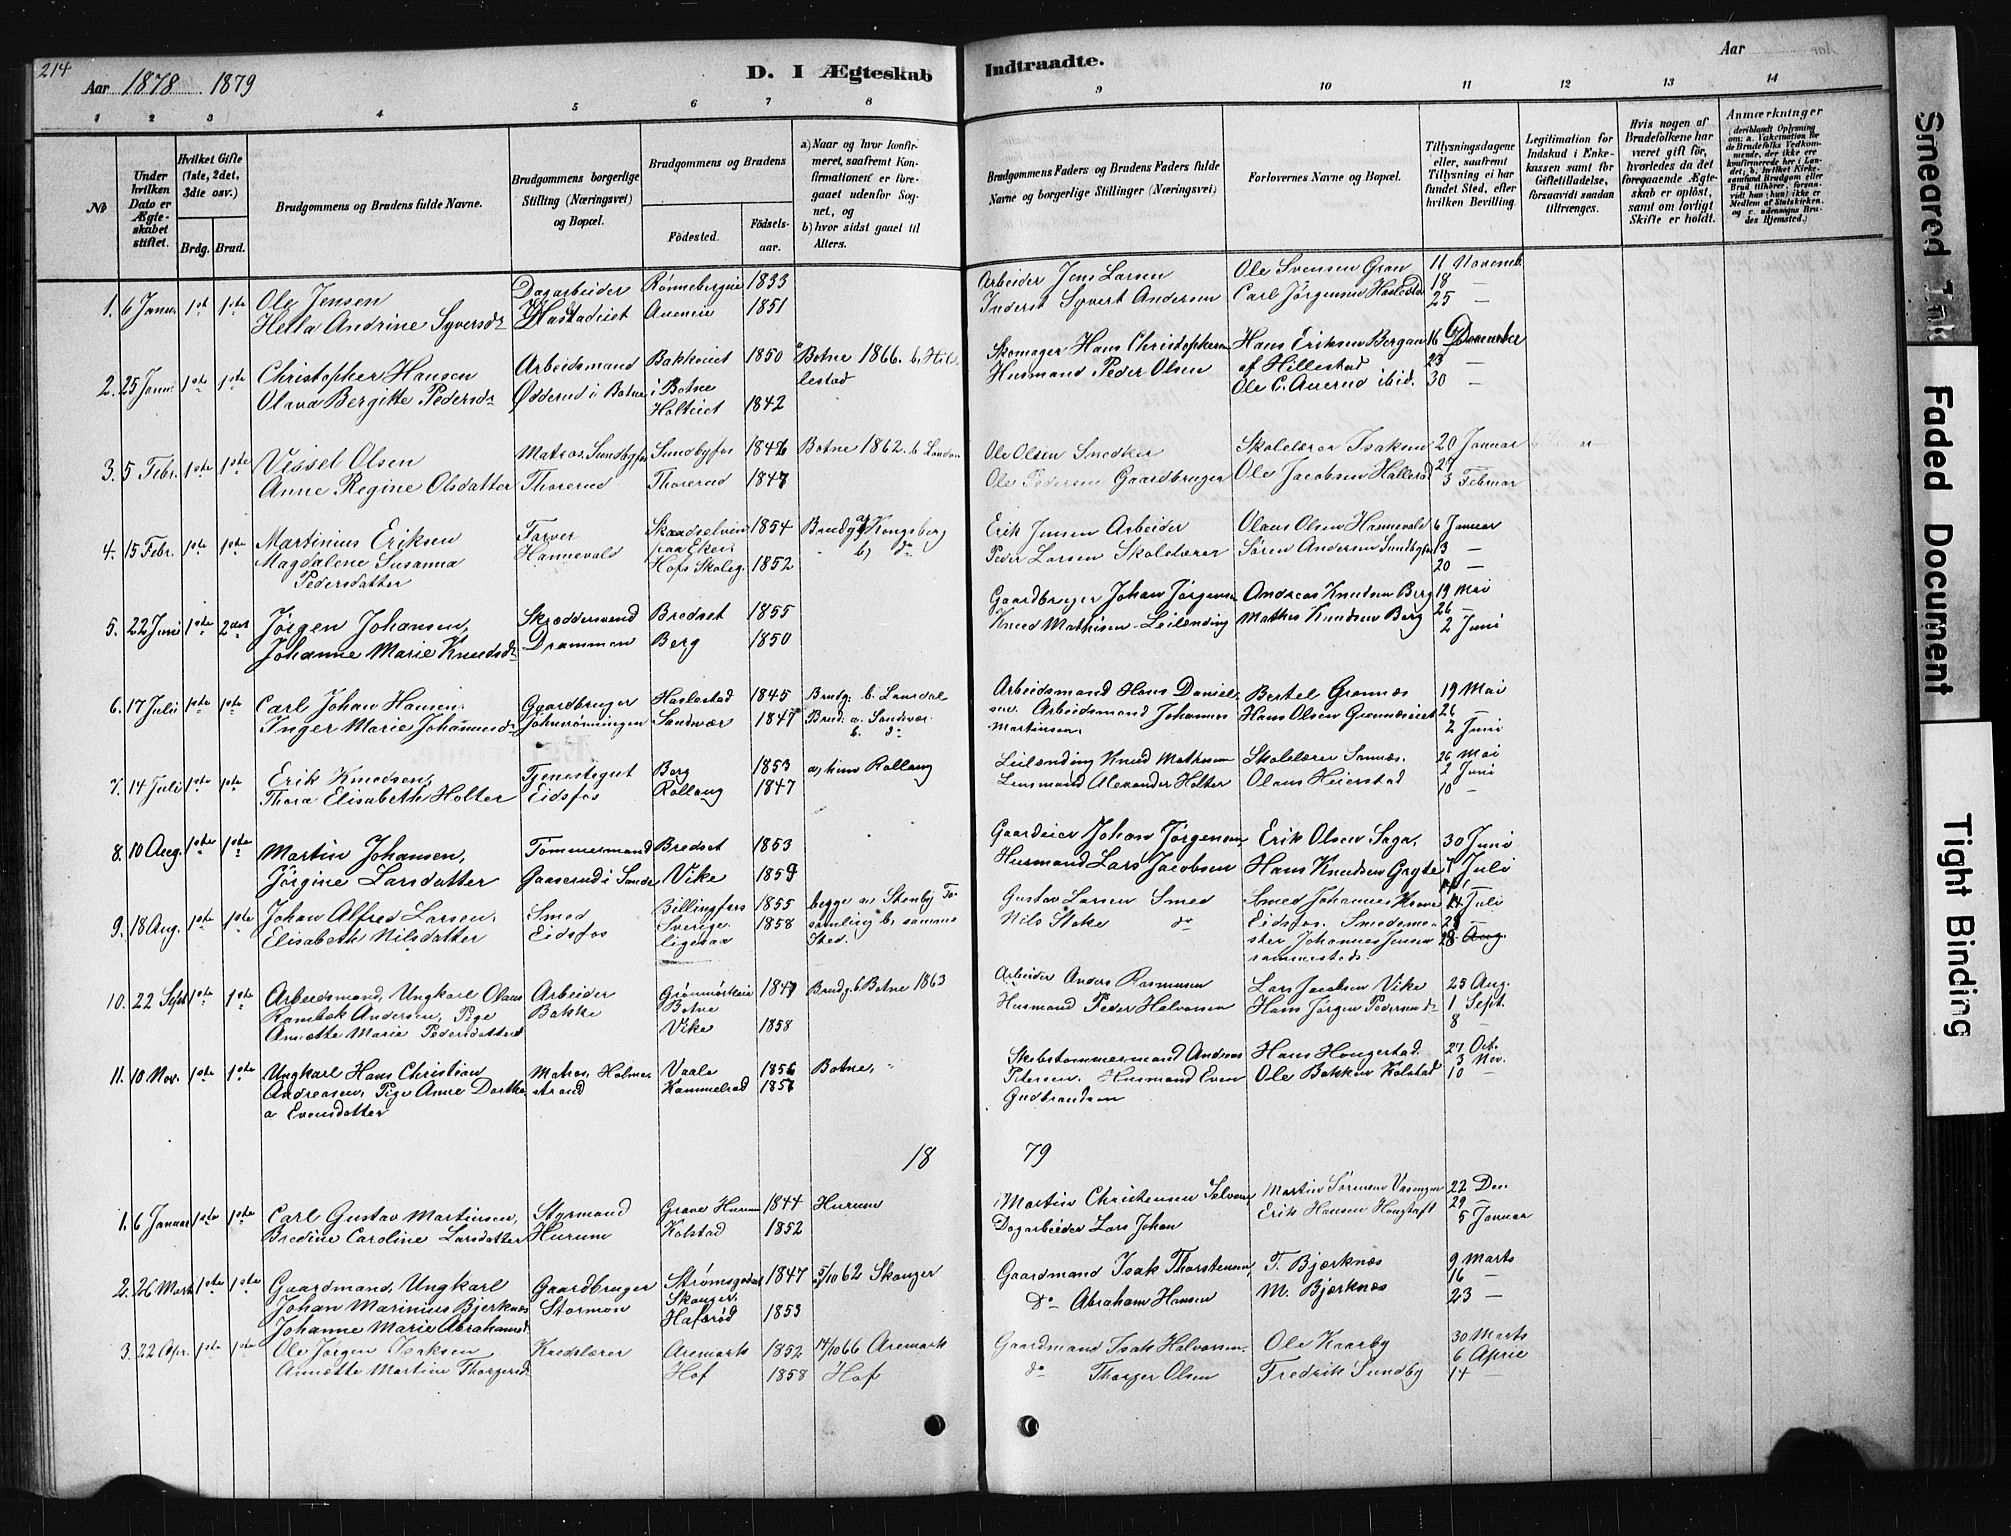 214
Aar 1878 1879
D. I Ægteskab Indtraadte.
Aar
1 2 3 4 5 6 7 8 9 10 11 12 13 14
No
Under hvilken Dato er Ægteskabet stiftet.
Hvilket Gifte (1ste, 2det, 3dte osv.)
Brdg. Brud.
Brudgommens og Brudens fulde Navne.
Brudgommens borgerlige Stilling (Næringsvei) og Bopæl.
Brudgommens og Brudens
Födested. Födselsaar.
a) Naar og hvor konfirmeret, saafremt Konfirmationen er foregaaet udenfor Sognet, og
b) hvor sidst gaaet til Alters.
Brudgommens Faders og Brudens Faders fulde Navne og borgerlige Stillinger (Næringsvei)
Forlovernes Navne og Bopæl.
Tillysningsdagene eller, saafremt Tillysning ei har fundet Sted, efter hvilken Bevilling.
Legitimation for Indskud i Enkekassen samt for Giftetilladelse, forsaavidt saadan tiltrænges.
Hvis nogen af Brudefolkene har været gift för, hvorledes da det foregaaende Ægteskab er oplöst, samt om lovligt Skifte er holdt.
Anmærkninger
(deriblandt Oplysning om: a. Vakcination for de Brudefolks Vedkommende, der ikke ere konfirmerede her i Landet; b. hvilket Kirkesamfund Brudgom eller Brud tilhörer, forsaavidt han (hun) ikke er Medlem af Statskirken. og c. udensogns Brudes Hjemsted.)
1. 6 Janu. 1ste 1ste Ole Jensen Dagarbeider Rønnebergeie 1833 Arbeider Jens Larsen Ole Svensen Gran 11 Novemb.
Hella Andrine Syversdr Haslestadeiet Aueneie 1851 Inderst Syvert Andersen Carl Jørgensen Haslestad 18 —
25 —
2. 25 Janu. 1ste 1ste Christopher Hansen Arbeidsmand Bakkeiet i Botne 1850 Botne 1866. b. Hillestad Skomager Hans Christophersen Hans Eriksen Bergan af Hillestad 16 December
Olava Bergitte Pedersdr Ødderud i Botne Holteiet 1842 Husmand Peder Olsen Ole C. Auerud ibid. 23 —
30 —
3. 5 Febr. 1ste 1ste Vessel Olsen Matros, Sundbyfos Sundbyfos 1846 Botne 1862. b. London Ole Olsen Snedker Skolelærer Isaksen 20 Januar
Anne Regine Olsdatter Thorerud Thorerud 1847 Ole Pedersen Gaardbruger Ole Jacobsen Hallerød 27
3 Februar
4. 15 Febr. 1ste 1ste Martinius Eriksen Farver Skandselveien paa Eker 1854 Brudg. a) Kongsberg Erik Jensen Arbeider Olaus Olsen Hannevold 6 Januar
Magdalene Susanna Pedersdatter Hannevold Hofs Skoleg. 1852 b) do Peder Larsen Skolelærer Søren Andersen Sundbyfos 13 —
20 —
5. 22 Juni 1ste 2det Jørgen Johansen, Skræddersvend Bredset 1855 Gaardbruger Johan Jørgensen Andreas Knudsen Berg 19 Mai
Johanne Marie Knudsdr Drammen Berg 1850 Knud Mathisen Leilending Mathis Knudsen Berg 26 —
2 Juni
6. 17 Juli 1ste 1ste Carl Johan Hansen Gaardbruger Haslestad 1845 Brudg. b. Laurdal Arbeidsmand Hans Danielsen. Bertel Grønnæs 19 Mai
Inger Marie Johannesdr Johnsrønningen Sandsvær 1847 Brud: a. Sandsvær b. do Arbeidsmand Johannes Martinsen. Hans Olsen Grønnæseiet 26 —
2 Juni
7. 14 Juli 1ste 1ste Erik Knudsen, Tjenestegut Berg 1853 a) hun Rollang Leilending Knud Mathisen Skolelærer Sannæs. 26 Mai
Thora Elisabeth Holter Eidsfos Rollang 1847 Lensmand Alexander Holter Olaus Heierstad 2 Juni
10 —
8. 10 Aug. 1ste 1ste Martin Johansen, Tømmermand Bredset 1853 Gaardeier Johan Jørgensen, Erik Olsen Saga, 30 Juni
Jørgine Larsdatter Gaaserud i Sande Vike 1859 Husmand Lars Jacobsen Hans Knudsen Gryte 7 Juli
14
9. 18 Aug. 1ste 1ste Johan Alfred Larsen, Smed Billingfors Sverige 1855 begge a) Stenby Forsamling b. samme Sted. Gustav Larsen Smed Smed Johannes 14 Juli
Elisabeth Nilsdatter Eidsfos ligesaa 1858 Nils Stake do Eidsfos. Smedemester Johannes Jensen sammesteds. 21
28 Aug.
10. 22 Sept. 1ste 1ste Arbeidsmand, Ungkarl Olaus Rambæk Andersen, Pige Arbeider Botne Brudg. b. Botne 1863 Arbeider Anders Rasmussen Lars Jacobsen Vike 25 Aug.
Annette Marie Pedersdatter Bakke Vike 1858 Husmand Peder Halvorsen Hans Jørgen Pedersen do 1 Sept.
8 —
11. 10 Nov. 1ste 1ste Ungkarl Hans Christian Andreasen, Pige Anne Dorthea Evensdatter Matros, Holmestrand Vaale 1856 Botne. Skibstømmermand Andreas Petersen. Hans Hougestad. 27 Oct.
Kammelrød Husmand Even Gudbrandsen Ole Bakken Kolstad 3 Nov.
10 —
1879
1. 6 Januar 1ste 1ste Carl Gustav Martinsen, Styrmand Grave Hurum 1844 Hurum Martin Christensen Martin Sørensen 22 Dec
Bredine Caroline Larsdatter Hurum Kolstad 1852 Dagarbeider Lars Johan Erik Hansen Hougtuft 29
5 Januar
2. 26 Marts 1ste 1ste Gaardmand, Ungkarl Johan Marinius Bjerknæs Gaardbruger Strømsgodset Skouger 1847 5/10 62 Skouger Gaardmand Isak Thorstensen, T. Bjærknæs 9 Marts
Johanne Marie Abrahamsd Stormøn Hafsrød 1853 do Abraham Hansen M. Bjærknæs 16 —
23 —
3. 22 Apr. 1ste 1ste Ole Jørgen Isaksen Kredslærer Aremark 1852 14/10 66 Aremark Gaardmand Isak Halvorsen. Ole Kaarby 30 Marts
Annette Martine Thorgersd Hof 1858 Hof do Thorger Olsen Fredrik Sundby 6 April
14 —
Smeared Ink
Faded Document
Tight Binding